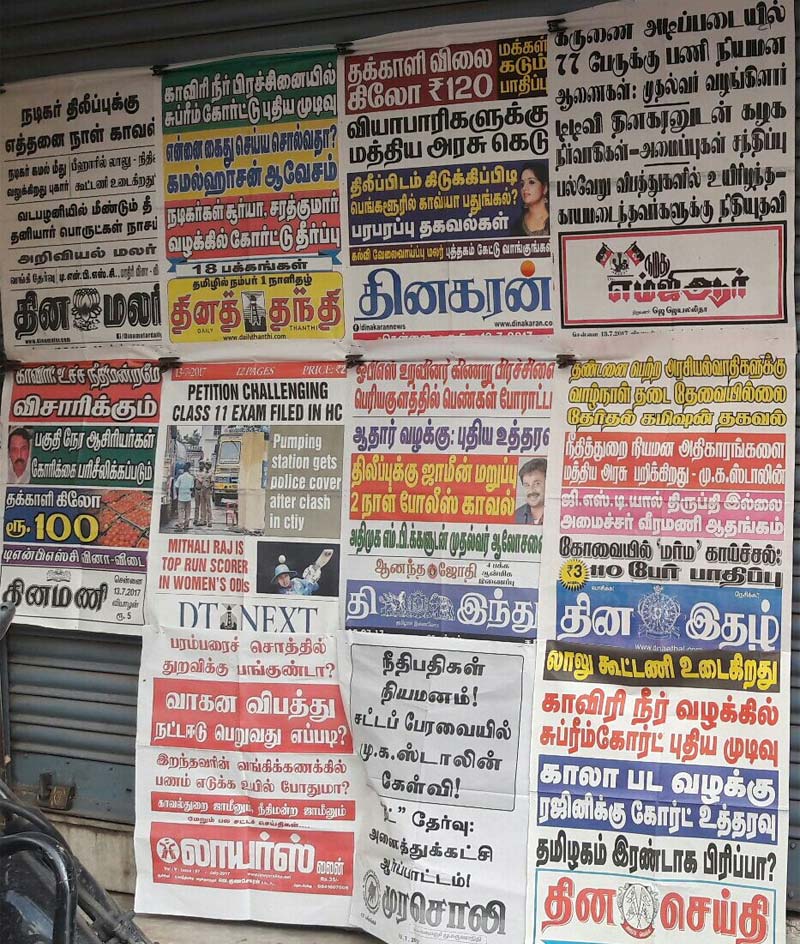 நடிகர் திலீப்புக்கு
எத்தனை நாள் காவல்
நடிகர் கமல் மீது
வலுக்கிறது புகார்
பீஹாரில் லாலு - நிதி
கூட்டணி உடைகிறது
வடபழனியில் மீண்டும் தீ
தனியார் பொருட்கள் நாசம்
அறிவியல் மலர்
வங்கி தேர்வு டி.என்.பி.எஸ்.சி.
தின மலர்
www.Dinamalar.com
காவிரி நீர் பிரச்சினையில்
சுப்ரீம் கோர்ட்டு புதிய முடிவு
என்னை கைது செய்ய சொல்வதா?
கமல்ஹாசன் ஆவேசம்
நடிகர்கள் சூர்யா, சரத்குமார்
வழக்கில் கோர்ட்டு தீர்ப்பு
18 பக்கங்கள்
தமிழில் நம்பர் 1 நாளிதழ்
தினத் தந்தி
DAILY THANTHI
www.dailythanthi.com
தக்காளி விலை
கிலோ ₹120
மக்கள்
கடும்
பாதிப்பு
வியாபாரிகளுக்கு
மத்திய அரசு கெடு
திலீப்பிடம் கிடுக்கிப்பிடி
பெங்களூரில் காவ்யா பதுங்கல்?
பரபரப்பு தகவல்கள்
கல்வி வேலைவாய்ப்பு மலர் புத்தகம் கேட்டு வாங்குங்கள்
தினகரன்
dinakarannews
www.dinakaran.co
கருணை அடிப்படையில்
77 பேருக்கு பணி நியமன
ஆணைகள்: முதல்வர் வழங்கினார்
டிடிவி தினகரனுடன் கழக
நிர்வாகிகள்-அமைப்புகள் சந்திப்பு
பல்வேறு விபத்துகளில் உயிரிழந்த-
காயமடைந்தவர்களுக்கு நிதியுதவி
எம்ஜிஆர்
நிறுவனர்: ஜெ ஜெயலலிதா
சென்னை 13.7.2017
காவிரி: உச்ச நீதிமன்றமே
விசாரிக்கும்
பகுதி நேர ஆசிரியர்கள்
கோரிக்கை பரிசீலிக்கப்படும்
தக்காளி கிலோ
ரூ.100
டிஎன்பிஎஸ்சி வினா-விடை
தினமணி
சென்னை
13.7.2017
வியாழன்
ரூ. 5
13-7-2017 12 PAGES PRICE: ₹2
PETITION CHALLENGING
CLASS 11 EXAM FILED IN HC
Pumping
station gets
police cover
after clash
in ctiy
MITHALI RAJ IS
TOP RUN SCORER
IN WOMEN'S ODIs
DT NEXT
ஓபிஎஸ் உறவினர் கிணறு பிரச்சினை
பெரியகுளத்தில் பெண்கள் போராட்ட
ஆதார் வழக்கு: புதிய உத்தரவு
திலீப்புக்கு ஜாமீன் மறுப்பு
2 நாள் போலீஸ் காவல்
அதிமுக எம்.பி.க்களுடன் முதல்வர் ஆலோசனை
ஆனந்த ஜோதி
4 பக்க
ஆன்மிக
இணைப்பு
தி இந்து
தண்டனை பெற்ற அரசியல்வாதிகளுக்கு
வாழ்நாள் தடை தேவையில்லை
தேர்தல் கமிஷன் தகவல்
நீதித்துறை நியமன அதிகாரங்களை
மத்திய அரசு பறிக்கிறது - மு.க.ஸ்டாலின்
ஜி.எஸ்.டி.யால் திருப்தி இல்லை
அமைச்சர் வீரமணி ஆதங்கம்
கோவையில் 'மர்ம' காய்ச்சல்:
₹3
110 பேர் பாதிப்பு
தின இதழ்
பரம்பரைச் சொத்தில்
துறவிக்கு பாங்குண்டா?
வாகன விபத்து
நட்டஈடு பெறுவது எப்படி?
இறந்தவரின் வங்கிக்கணக்கில்
பணம் எடுக்க உயில் போதுமா?
காவல்துறை ஜாமீனும், நீதிமன்ற ஜாமீனும்
மேலும் பல சட்டச் செய்திகள்....
லாயர்ஸ் லைன்
நீதிபதிகள்
நியமனம்!
சட்டப் பேரவையில்
மு.க.ஸ்டாலின்
கேள்வி!
தேர்வு:
அனைத்துக்கட்சி
ஆர்ப்பாட்டம்!
முரசொலி
லாலு கூட்டணி உடைகிறது
காவிரி நீர் வழக்கில்
சுப்ரீம்கோர்ட் புதிய முடிவு
காலா பட வழக்கு
ரஜினிக்கு கோர்ட் உத்தரவு
தமிழகம் இரண்டாக பிரிப்பா?
தின செய்தி